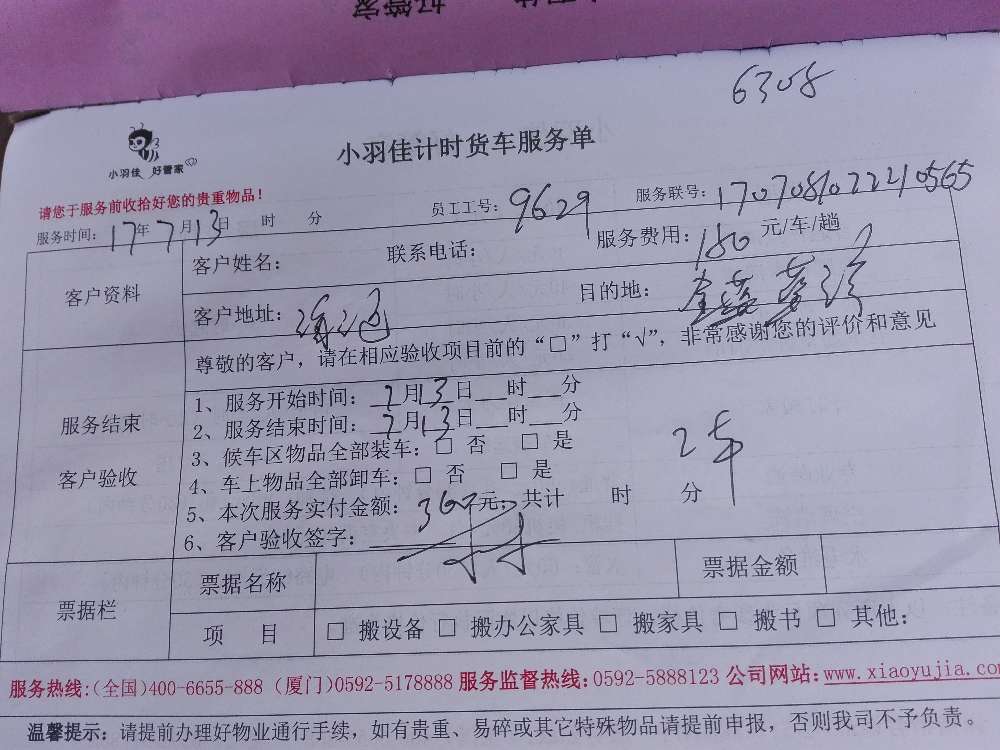 好管家
6308
小羽佳 好管家
小羽佳计时货车服务单
请您于服务前收拾好您的贵重物品！
服务时间：17年7月13日 时 分 员工工号：9629 服务联号：170708102221 0565
客户资料 客户姓名： 联系电话： 服务费用：180元/车/趟
客户地址： 目的地：
尊敬的客户，请在相应验收项目前的“□”打“√”，非常感谢您的评价和意见
服务结束
客户验收
1、服务开始时间：7月13日__时__分
2、服务结束时间：7月13日__时__分
3、候车区物品全部装车：□ 否 □ 是
4、车上物品全部卸车：□ 否 □ 是
2车
5、本次服务实付金额：360元；共计 时 分
6、客户验收签字：
票据栏 票据名称 票据金额
项 目 □ 搬设备 □ 搬办公家具 □ 搬家具 □ 搬书 □ 其他：
服务热线:(全国)400-6655-888 (厦门)0592-5178888 服务监督热线:0592-5888123 公司网站:www.xiaoyujia.com
温馨提示：请提前办理好物业通行手续，如有贵重、易碎或其它特殊物品请提前申报，否则我司不予负责。